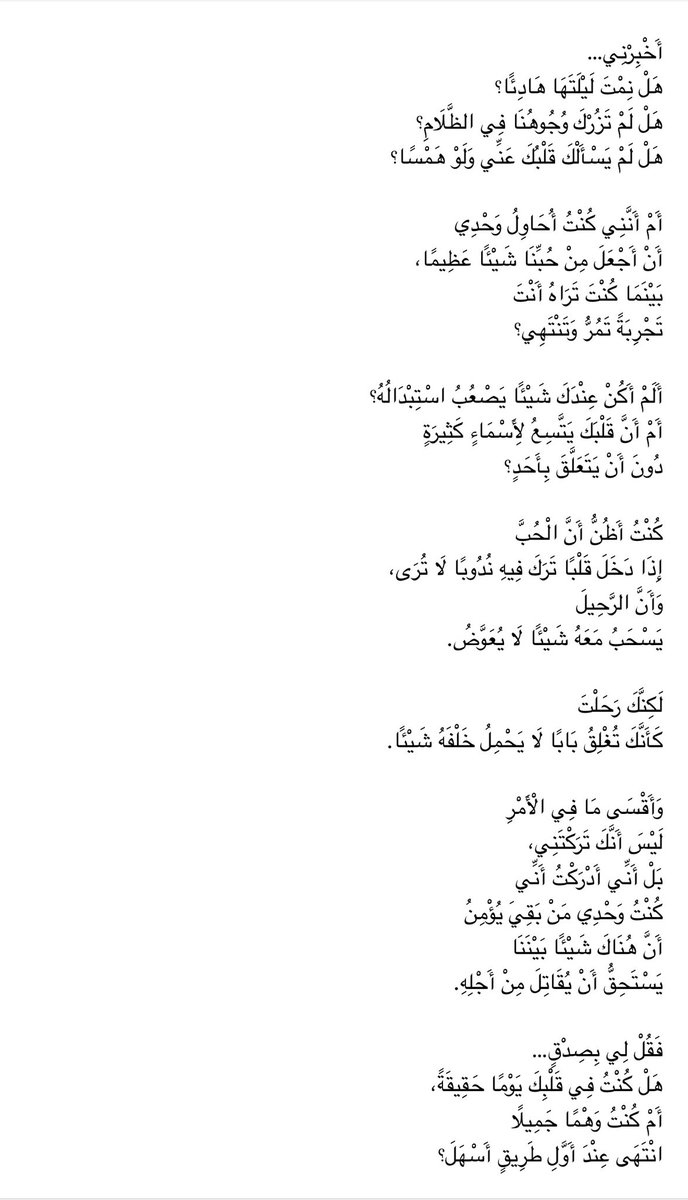 أَخْبِرْنِي...
هَلْ نِمْتَ لَيْلَتَهَا هَادِئًا؟
هَلْ لَمْ تَزُرْكَ وُجُوهُنَا فِي الظَّلَامِ؟
هَلْ لَمْ يَسْأَلْكَ قَلْبُكَ عَنِّي وَلَوْ هَمْسًا؟
أَمْ أَنَّنِي كُنْتُ أُحَاوِلُ وَحْدِي
أَنْ أَجْعَلَ مِنْ حُبِّنَا شَيْئًا عَظِيمًا،
بَيْنَمَا كُنْتَ تَرَاهُ أَنْتَ
تَجْرِبَةً تَمُرُّ وَتَنْتَهِي؟
أَلَمْ أَكُنْ عِنْدَكَ شَيْئًا يَصْعُبُ اسْتِبْدَالُهُ؟
أَمْ أَنَّ قَلْبَكَ يَتَّسِعُ لِأَسْمَاءٍ كَثِيرَةٍ
دُونَ أَنْ يَتَعَلَّقَ بِأَحَدٍ؟
كُنْتُ أَظُنُّ أَنَّ الْحُبَّ
إِذَا دَخَلَ قَلْبًا تَرَكَ فِيهِ نُدُوبًا لَا تُرَى،
وَأَنَّ الرَّحِيلَ
يَسْحَبُ مَعَهُ شَيْئًا لَا يُعَوَّضُ.
لَكِنَّكَ رَحَلْتَ
كَأَنَّكَ تُغْلِقُ بَابًا لَا يَحْمِلُ خَلْفَهُ شَيْئًا.
وَأَقْسَى مَا فِي الْأَمْرِ
لَيْسَ أَنَّكَ تَرَكْتَنِي،
بَلْ أَنِّي أَدْرَكْتُ أَنِّي
كُنْتُ وَحْدِي مَنْ بَقِيَ يُؤْمِنُ
أَنَّ هُنَاكَ شَيْئًا بَيْنَنَا
يَسْتَحِقُّ أَنْ يُقَاتِلَ مِنْ أَجْلِهِ.
فَقُلْ لِي بِصِدْقٍ...
هَلْ كُنْتُ فِي قَلْبِكَ يَوْمًا حَقِيقَةً،
أَمْ كُنْتُ وَهْمًا جَمِيلًا
انْتَهَى عِنْدَ أَوَّلِ طَرِيقٍ أَسْهَلَ؟